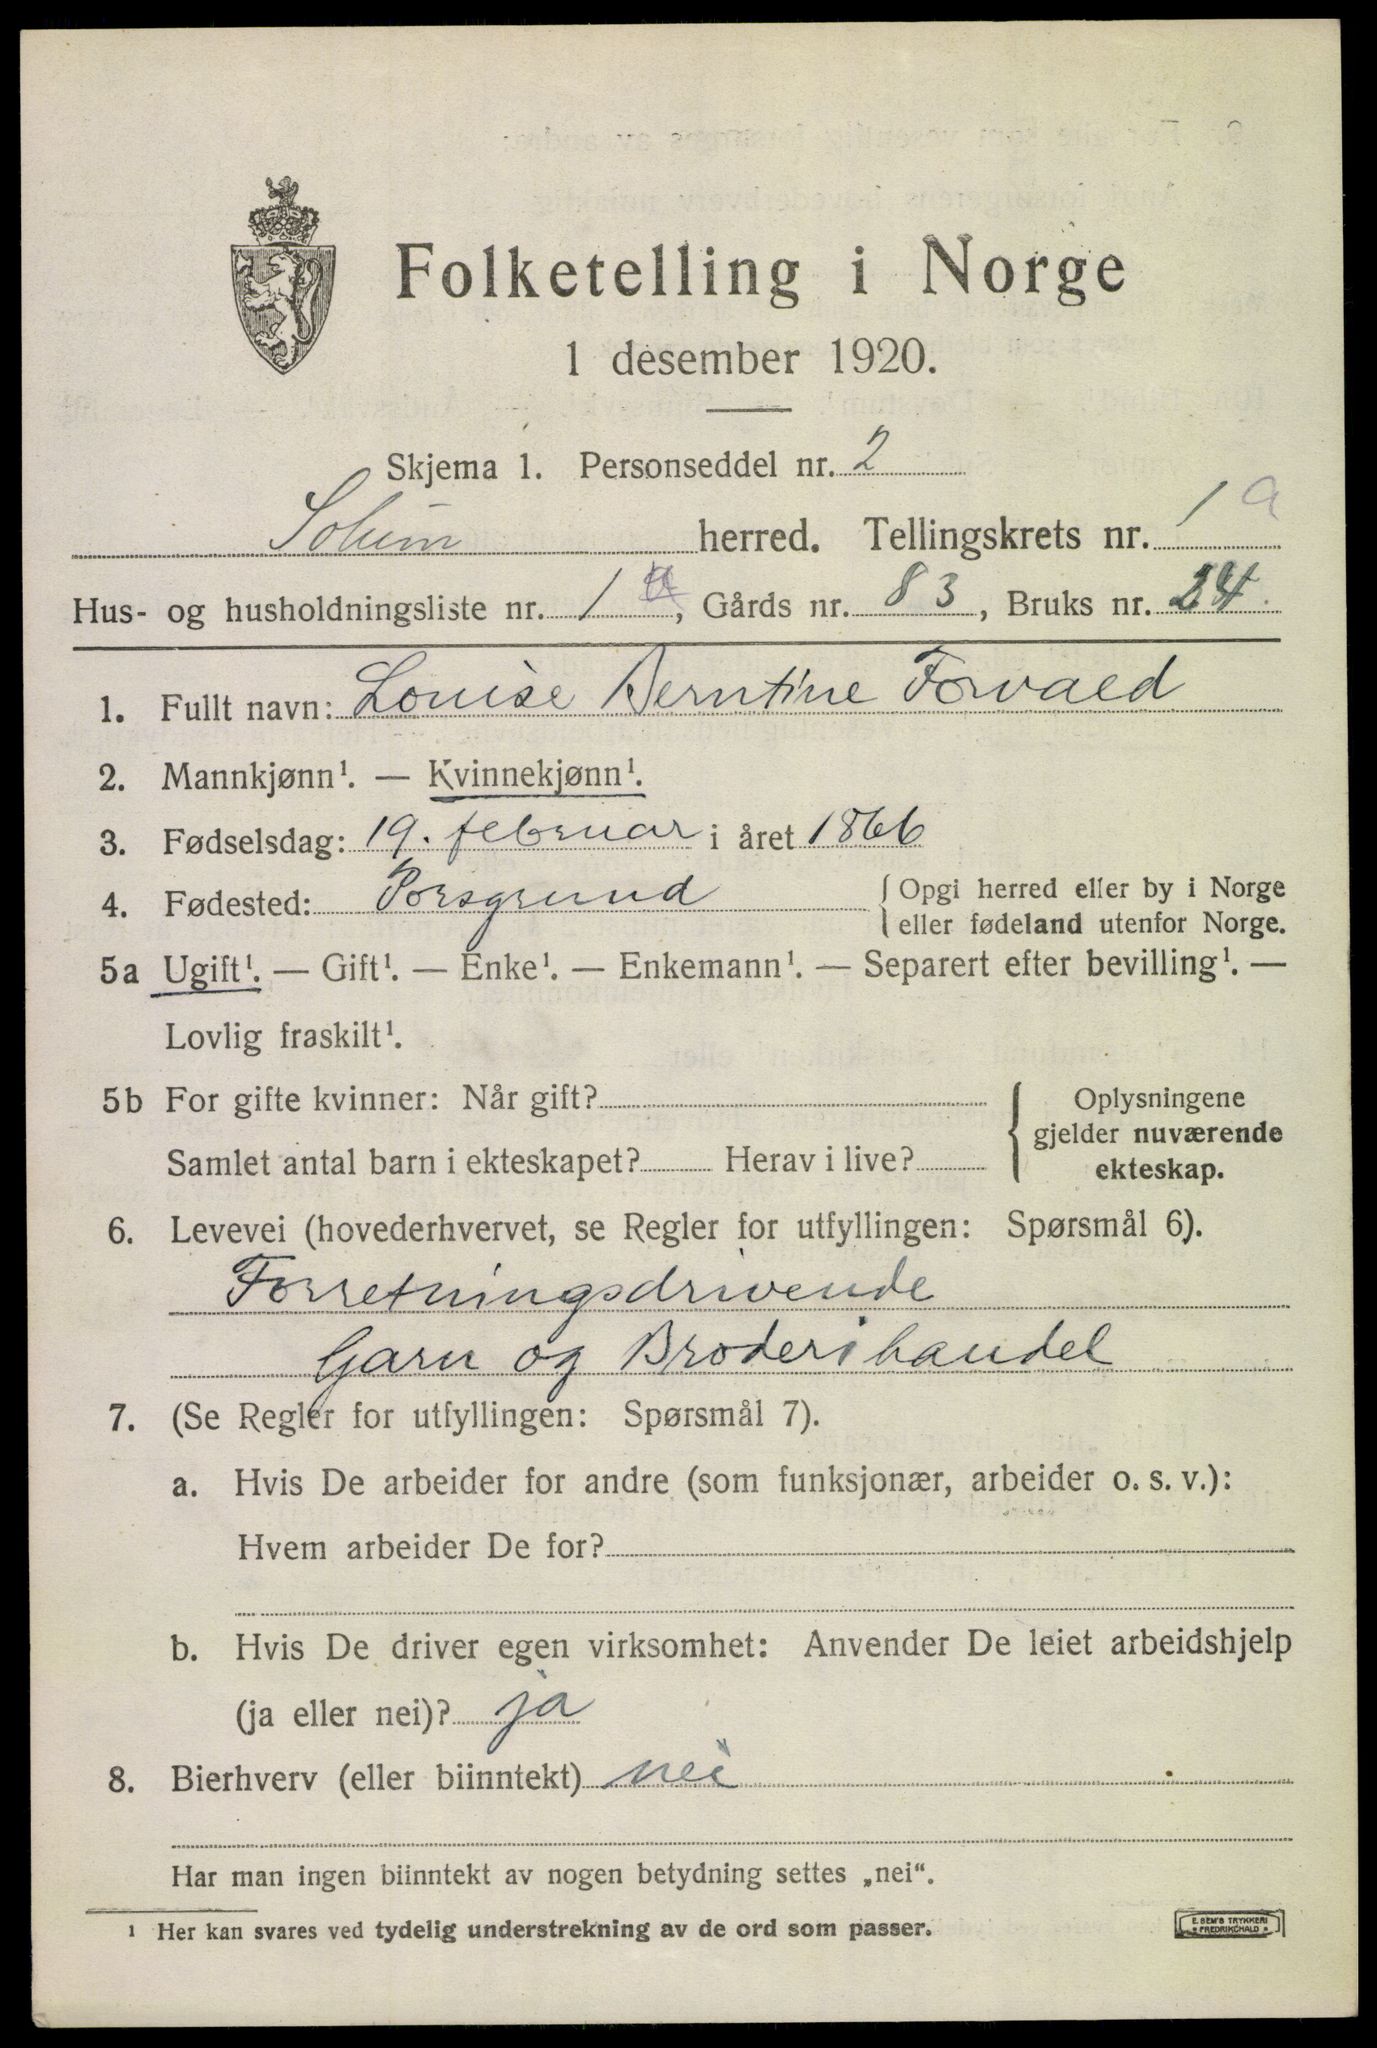 Folketelling i Norge
1 desember 1920.
Skjema 1. Personseddel nr. 2
Solum herred. Tellingskrets nr. 1 a
Hus- og husholdningsliste nr. 1 a, Gårds nr. 83, Bruks nr. 24.
1. Fullt navn: Louise Berntine Forvald
2. Mannkjønn¹. — Kvinnekjønn¹.
3. Fødselsdag: 19. februar i året 1866
4. Fødested: Porsgrund { Opgi herred eller by i Norge
eller fødeland utenfor Norge.
5a Ugift¹. — Gift¹. — Enke¹. — Enkemann¹. — Separert efter bevilling¹. —
Lovlig fraskilt¹.
5b For gifte kvinner: Når gift? { Oplysningene
gjelder nuværende
Samlet antal barn i ekteskapet? Herav i live? ekteskap.
6. Levevei (hovederhvervet, se Regler for utfyllingen: Spørsmål 6).
Forretningsdrivende
Garn og Broderihandel
7. (Se Regler for utfyllingen: Spørsmål 7).
a. Hvis De arbeider for andre (som funksjonær, arbeider o. s. v.):
Hvem arbeider De for?
b. Hvis De driver egen virksomhet: Anvender De leiet arbeidshjelp
(ja eller nei)? ja
8. Bierhverv (eller biinntekt) nei
Har man ingen biinntekt av nogen betydning settes „nei“.
¹ Her kan svares ved tydelig understrekning av de ord som passer.
E. SEM'S TRYKKERI
FREDRIKSHALD